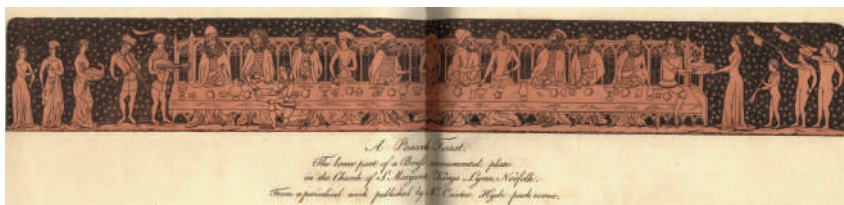 A Peacock Feast.
The lower part of a Brass monumental plate
in the Church of St Margaret Kings Lynn, Norfolk.
From a periodical work, published by Mr Carter Hyde park corner.